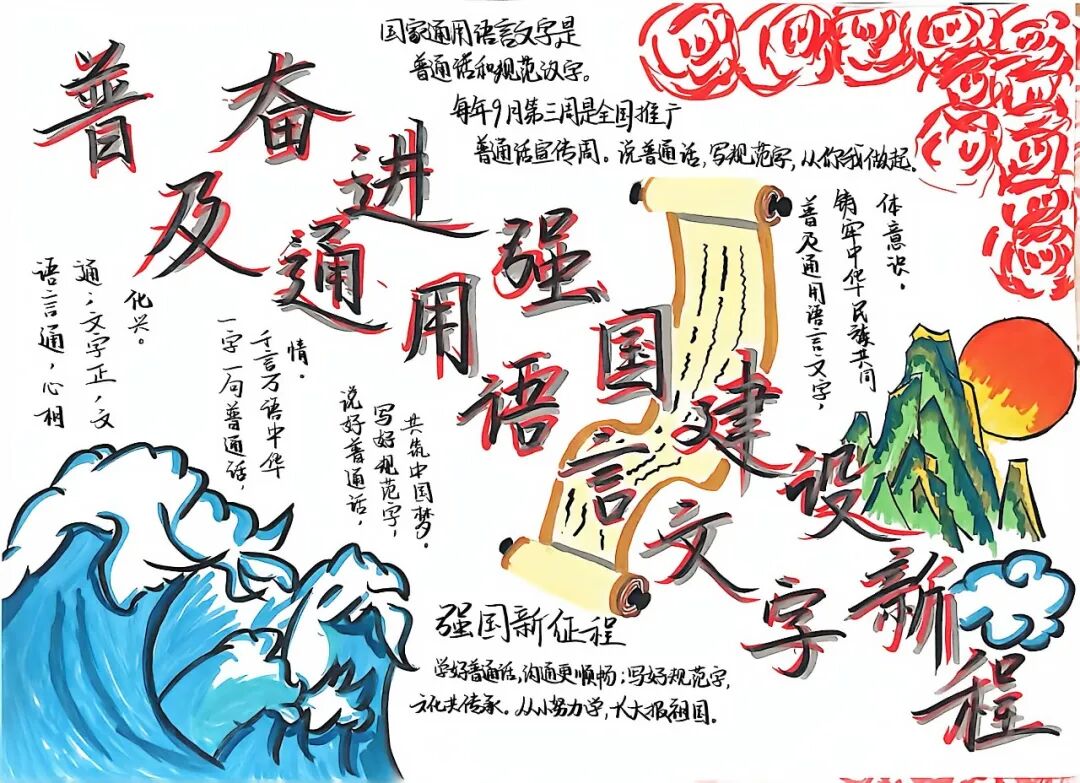 普及通用语言文字
奋进强国建设新程
国家通用语言文字是
普通话和规范汉字。
每年9月第三周是全国推广
普通话宣传周。说普通话，写规范字，从你我做起。
语言通，心相
通；文字正，文
化兴。
一字一句普通话，
千言万语中华
情。
说好普通话，
写好规范字，
共筑中国梦。
普及通用语言文字，
铸牢中华民族共同
体意识。
强国新征程
学好普通话，沟通更顺畅；写好规范字，
文化共传承。从小努力学，长大报祖国。